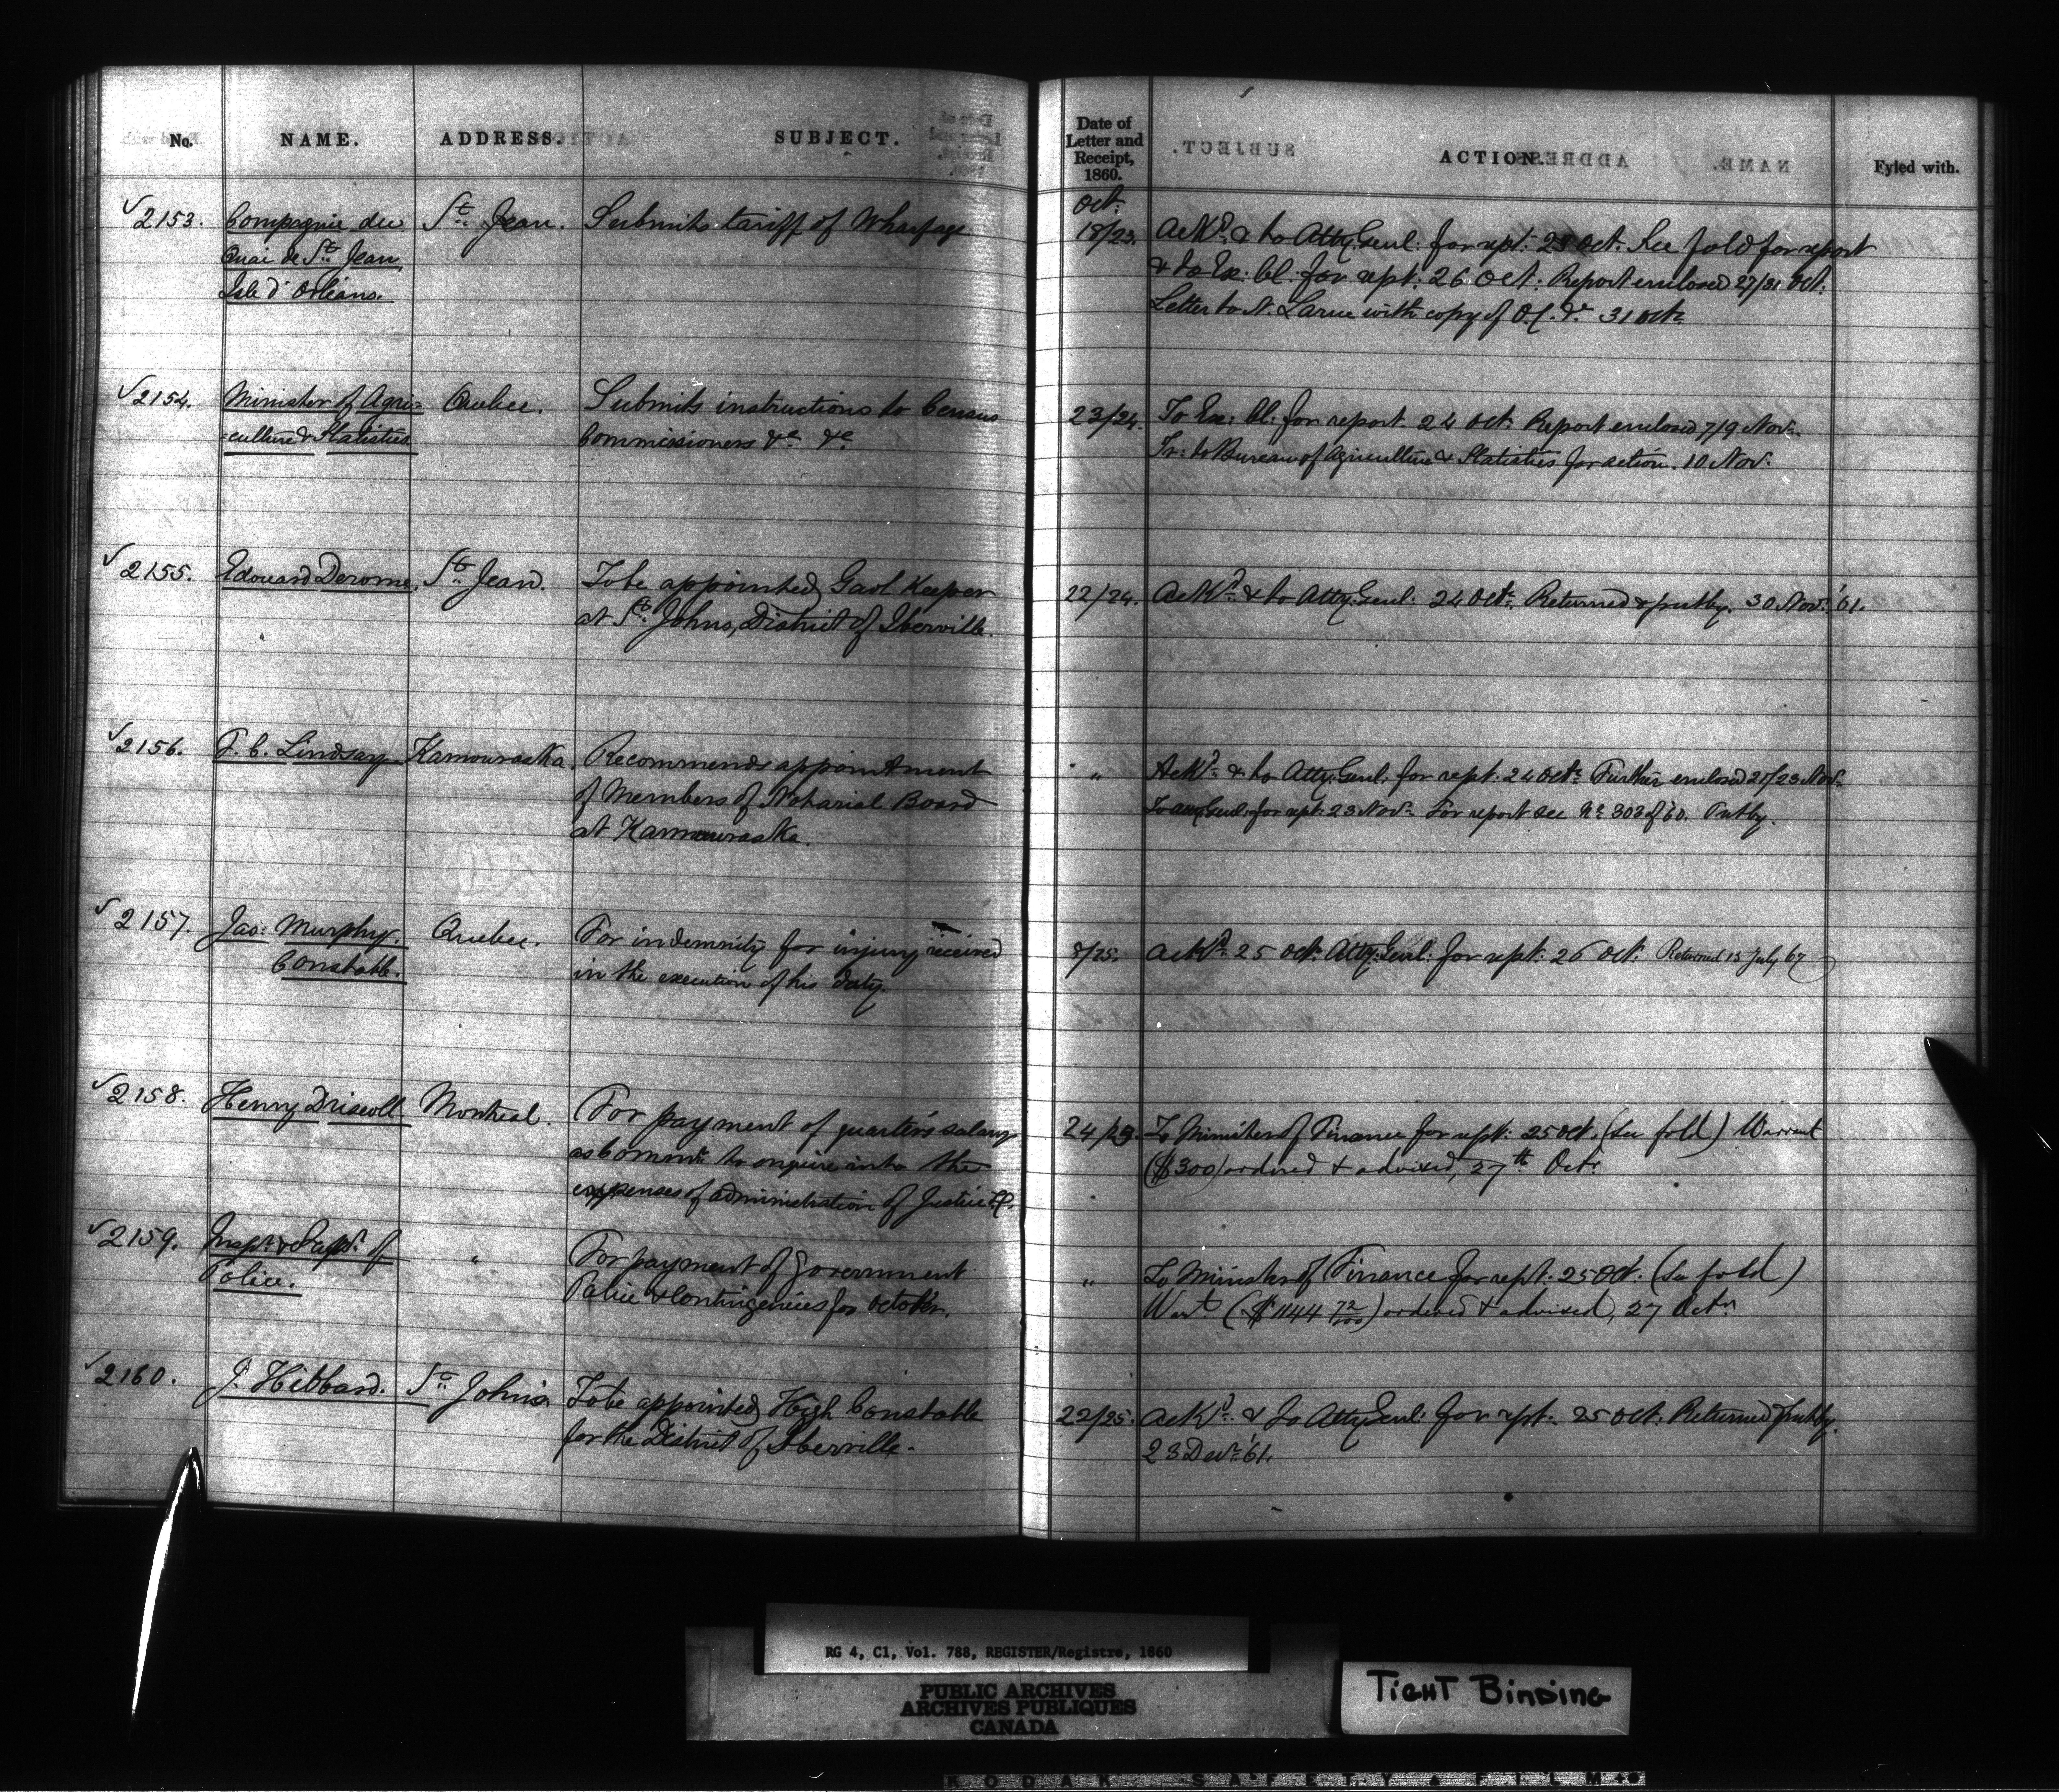 No. NAME. ADDRESS. SUBJECT. Date of Letter and Receipt, 1860. ACTION. Fyled with.
Oct:
2153. Compagnie du St. Jean. Submits tariff of Wharfage 18/23. Ackd. & to Atty. Genl: for rept: 23 Oct: See fold for report
Quai de St. Jean & to Ex: Cl: for rept: 26 Oct: Report enclosed 27/31 Oct:
Isle d'Orléans. Letter to N. Larue with copy of O.C. 31 Octr
2154. Minister of Agri- Quebec. Submits instructions to Census 23/24. To Ex: Cl: for report 24 Oct: Report enclosed 7/9 Novr.
-culture & Statistics Commissioners &c. &c. Tr: to Bureau of Agriculture & Statistics for action. 10 Nov:
2155. Edouard Derome. St. Jean. To be appointed Gaol Keeper 22/24. Ackd. & to Atty: Genl: 24 Octr. Returned & put by. 30 Novr. '61.
at St. Johns, District of Iberville.
2156. T. C. Lindsay Kamouraska. Recommends appointment " Ackd. & to Atty: Genl: for rept: 24 Octr. Further enclosed 21/23 Novr.
of Members of Notarial Board To Atty: Genl: for rept: 23 Novr. For report see No. 303 of '60. Put by.
at Kamouraska.
2157. Jas: Murphy. Quebec. For indemnity for injury received 8/25. Ackd. 25 Octr. Atty: Genl: for rept: 26 Oct: Returned 13 July 67
Constable. in the execution of his duty.
2158. Henry Driscoll Montreal. For payment of quarter's salary 24/25. To Minister of Finance for rept: 25 Oct. (See fold) Warrant
as Commr. to enquire into the ($300) ordered & advised, 27th Octr.
expenses of administration of Justice &c.
2159. Inspr. & Supdt. of " For payment of Government " To Minister of Finance for rept: 25 Oct. (See fold)
Police. Police & Contingencies for October. Wart. ($1144 72/100) ordered & advised, 27 Octr.
2160. J. Hibbard. St. Johns To be appointed High Constable 22/25. Ackd. & To Atty: Genl: for rept: 25 Oct: Returned & put by.
for the District of Iberville. 23 Decr. '61.
RG 4, C1, Vol. 788, REGISTER/Registre, 1860
PUBLIC ARCHIVES
ARCHIVES PUBLIQUES
CANADA
TIGHT BINDING
KODAK SAFETY FILM